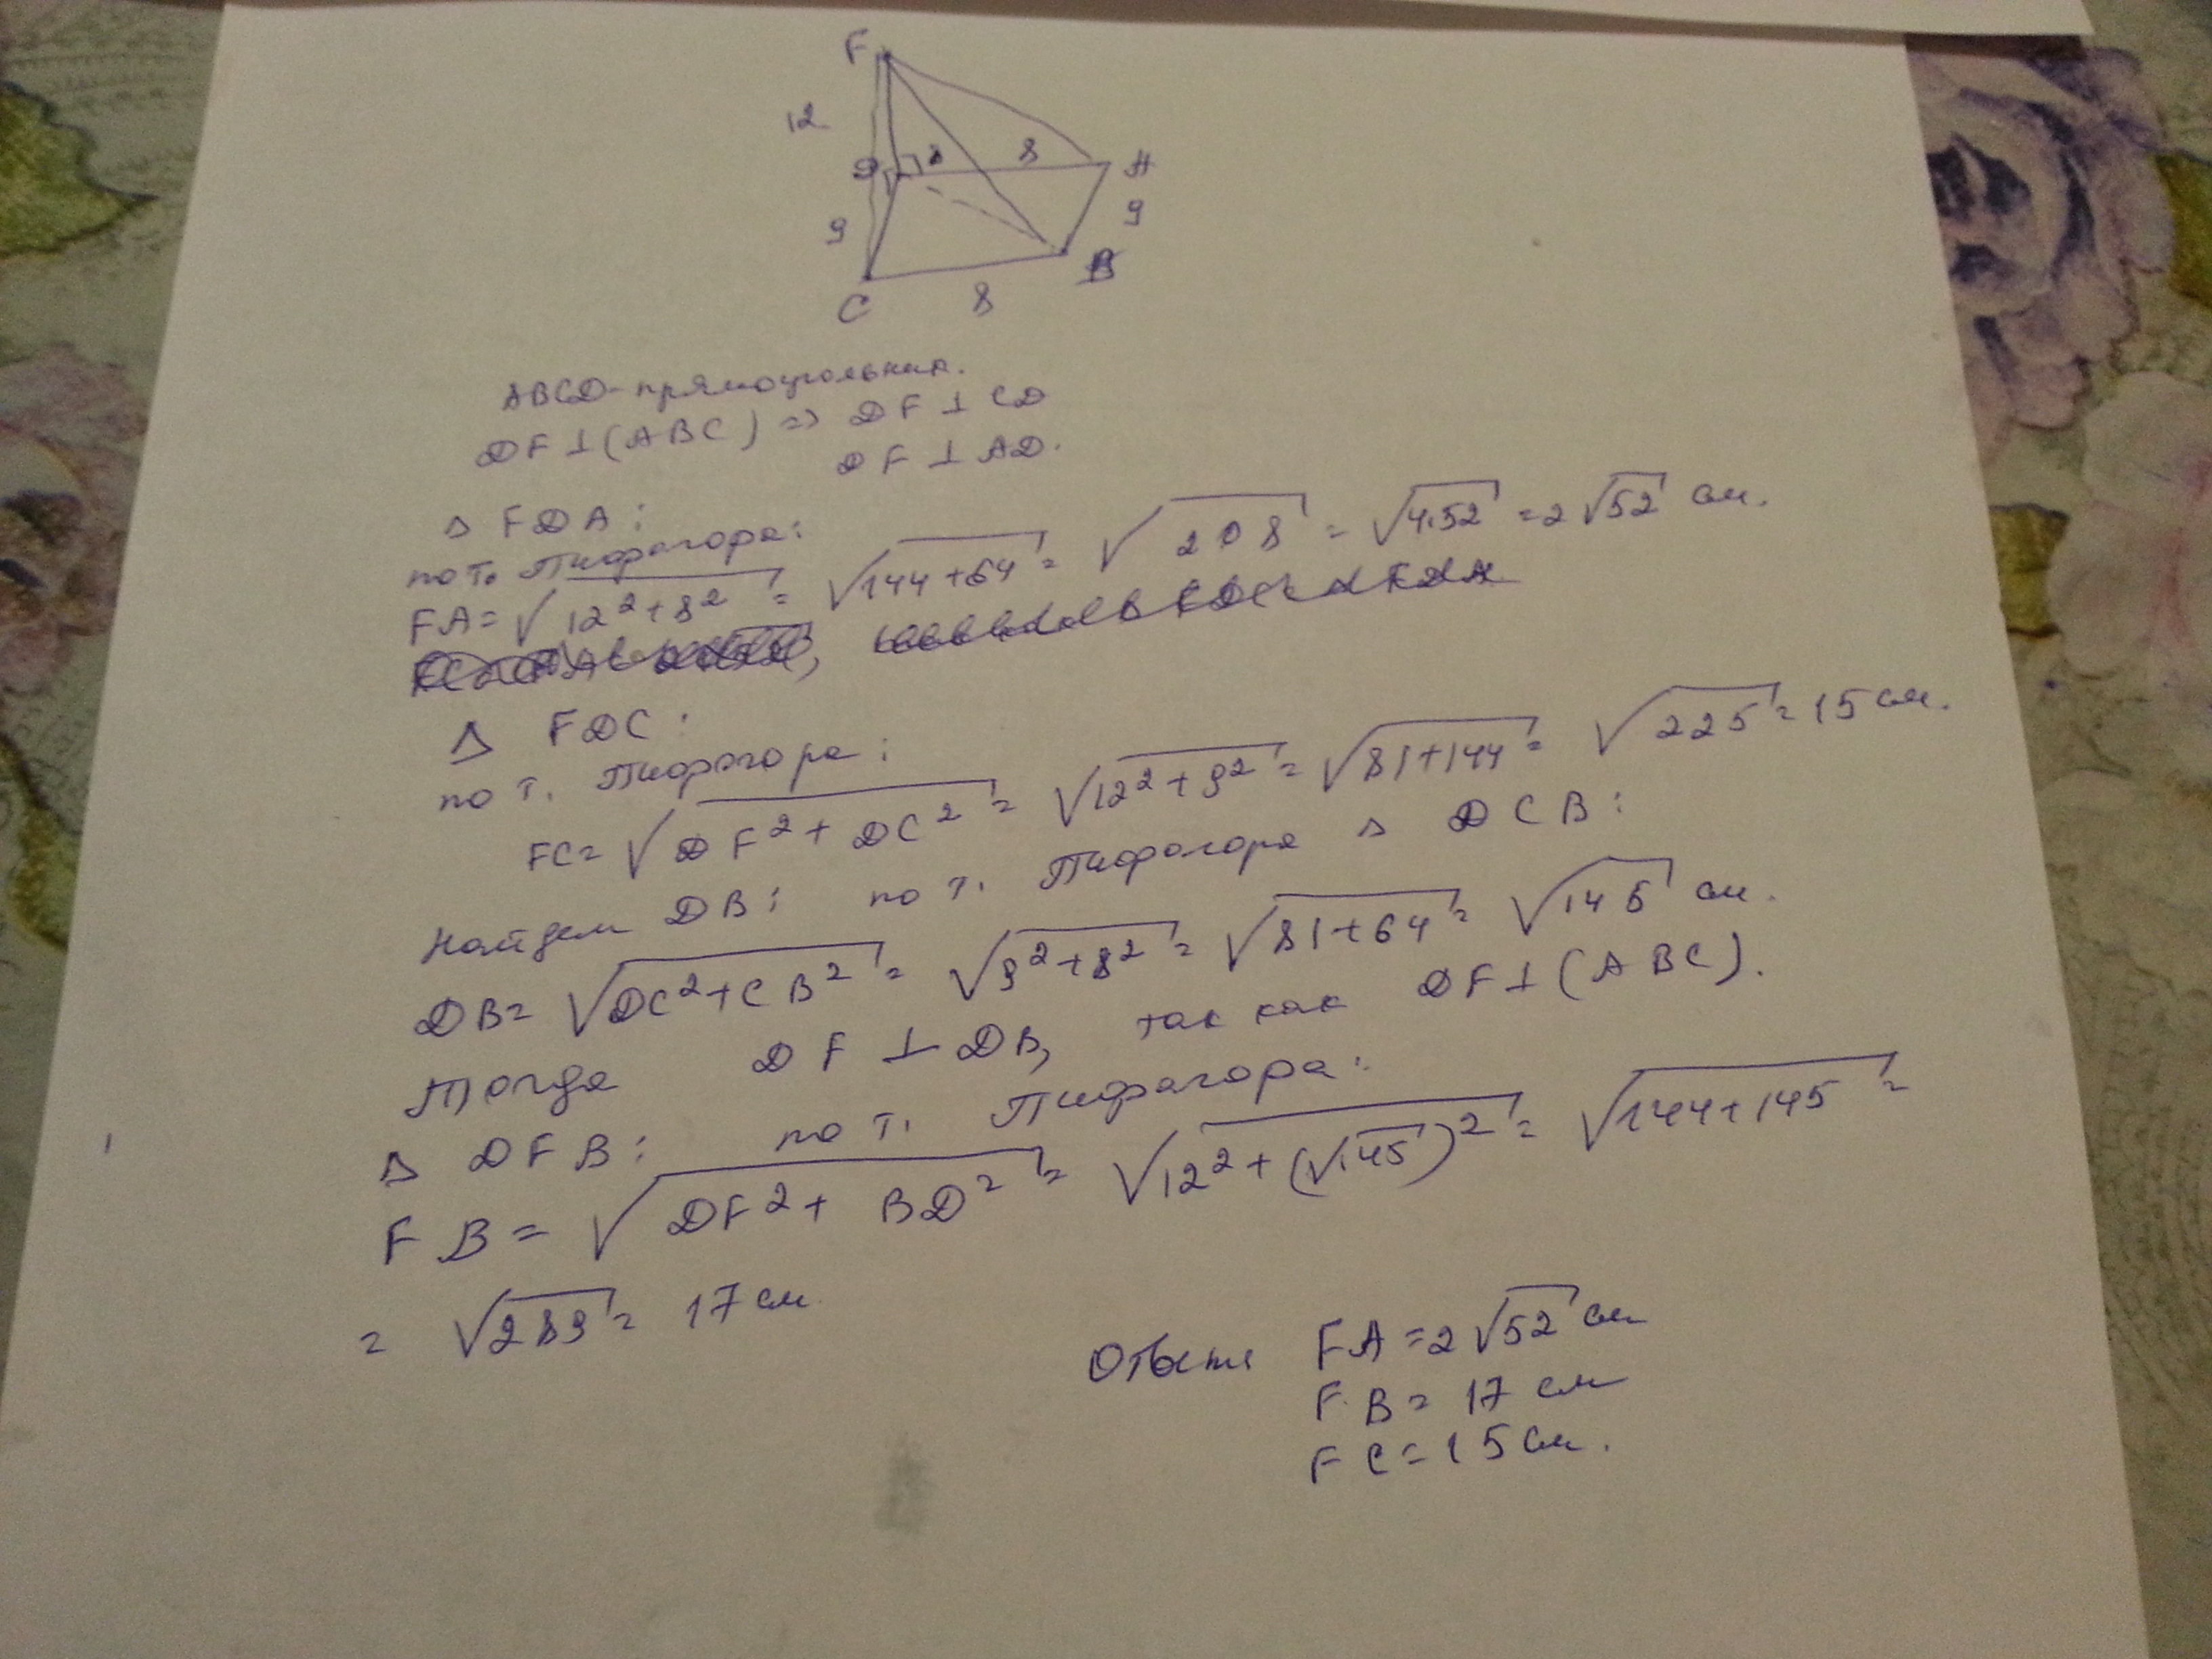 F
12
D
8
8
A
9
9
B
C
8
ABCD - прямоугольник.
DF ⊥ (ABC) => DF ⊥ CD
DF ⊥ AD.
Δ FDA:
по т. Пифагора:
FA = √(12² + 8²) = √(144+64) = √208 = √(4·52) = 2√52 см.
Δ FDC:
по т. Пифагора:
FC = √(DF² + DC²) = √(12² + 9²) = √(81+144) = √225 = 15 см.
Найдем DB: по т. Пифагора Δ DCB:
DB = √(DC² + CB²) = √(9² + 8²) = √(81+64) = √145 см.
Тогда DF ⊥ DB, так как DF ⊥ (ABC).
Δ DFB: по т. Пифагора:
FB = √(DF² + BD²) = √(12² + (√145)²) = √(144+145) =
= √289 = 17 см
Ответ FA = 2√52 см
FB = 17 см
FC = 15 см.